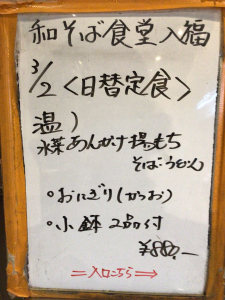 和そば食堂 入福
3/2 <日替定食>
温)
水菜あんかけ揚もち
そば・うどん
◦おにぎり(かつお)
◦小鉢 2品付
¥880.-
=入口こちら⇒